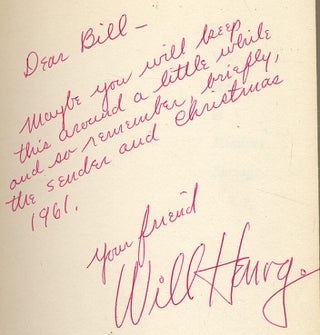 Dear Bill —
Maybe you will keep
this around a little while
and so remember, briefly,
the sender and Christmas
1961.
Your friend
Will Henry.